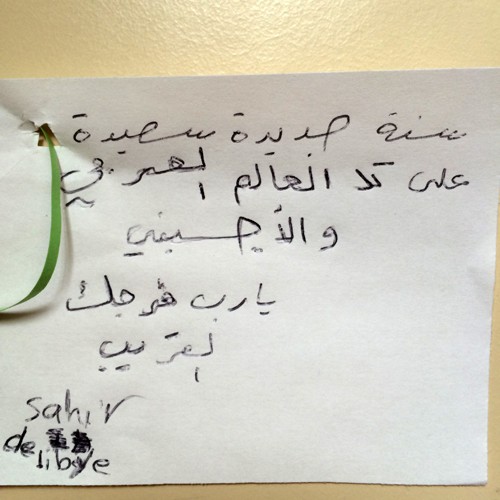 سنة جديدة سعيدة
على كلا العالم العربي
والأجنبي
يارب فرجك
القريب
sahir
de
libye